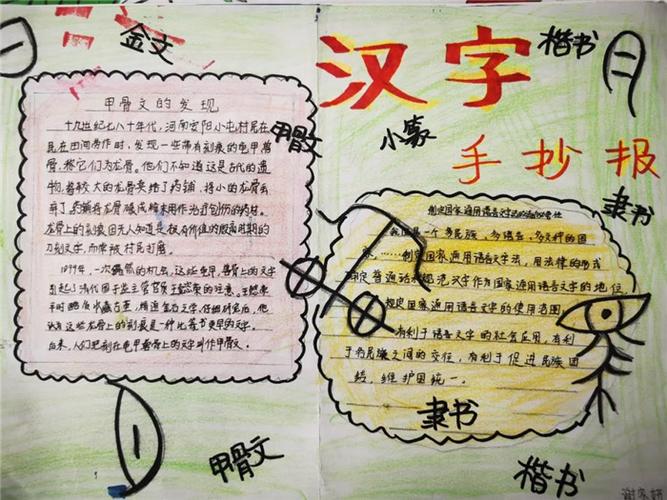 金文
汉字
楷书
小篆
手抄报
隶书
甲骨文
甲骨文的发现
十九世纪七八十年代,河南安阳小屯村民在
在田间劳作时,发现一些带有刻痕的龟甲兽
骨,称它们为龙骨。他们不知道这是古代的遗
物,着较大的龙骨卖给了药铺,将小的龙骨丢
弃了,药铺将龙骨碾成粉末用作治疗创伤的药材。
龙骨上的刻痕但无人知道是极有价值的殷商时期的
刻文字,而常被村民刮磨。
1899年,一次偶然的机会,这些龟甲、兽骨上的文字
引起了清代国子监主管官员王懿荣的注意。王懿荣
平时酷爱收藏古董,精通金石文字,仔细研究后,他
认为这些龙骨上的刻痕是一种比篆书更早的文字。
后来,人们把刻在龟甲兽骨上的文字叫作甲骨文。
制定国家通用语言文字法的
我国是一个多民族,多语言,多文种的国
家,……制定国家通用语言文字法,用法律的形式
确定普通话和规范汉字作为国家通用语言文字的地位,
规定国家通用语言文字的使用范围
有利于语言文字的社会应用,有利
于各民族之间的交往,有利于促进民族团
结,维护国统一。
隶书
甲骨文
楷书